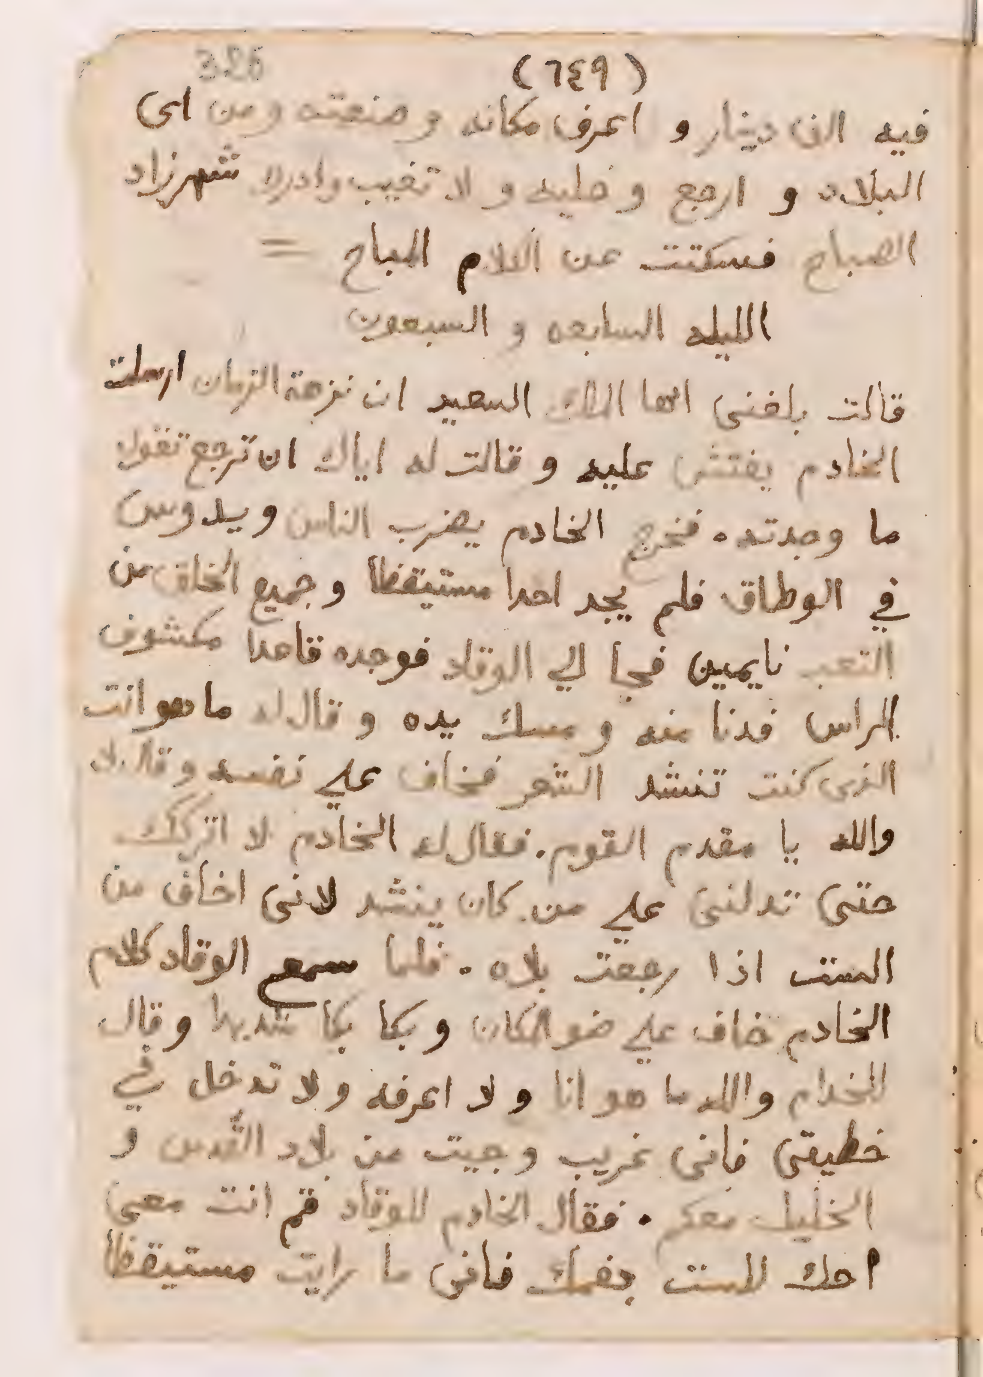 326 (٦٤٩)
فيه الف دينار و اعرف مكانه و صنعته و من اى
البلاد و ارجع و خليه و لا تغيب وادرك شهرزاد
الصباح فسكتت عن الكلام المباح =
الليله السابعه و السبعون
قالت بلغنى ايها الملك السعيد ان نزهة الزمان ارسلت
الخادم يفتش عليه و قالت له اياك ان ترجع تقول
ما وجدته . فخرج الخادم يضرب الناس ويدوس
في الوطاق فلم يجد احدا مستيقظا وجميع الخلق من
التعب نايمين فجا الي الوقاد فوجده قاعدا مكشوف
الراس فدنا منه و مسك يده و قال له ما هو انت
الذى كنت تنشد الشعر فخاف علي نفسه و قال لا
والله يا مقدم القوم . فقال له الخادم لا اتركك
حتى تدلنى علي من كان ينشد لانى اخاف من
الست اذا رجعت بلاه . فلما سمع الوقاد كلام
الخادم خاف علي ضو المكان و بكا بكا شديدا و قال
للخدام والله ما هو انا و لا اعرفه و لا تدخل في
خطيتى فانى غريب و جيت من بلاد القدس و
الخليل معكم . فقال الخادم للوقاد قم انت معى
احك للست بفمك فانى ما رايت مستيقظا